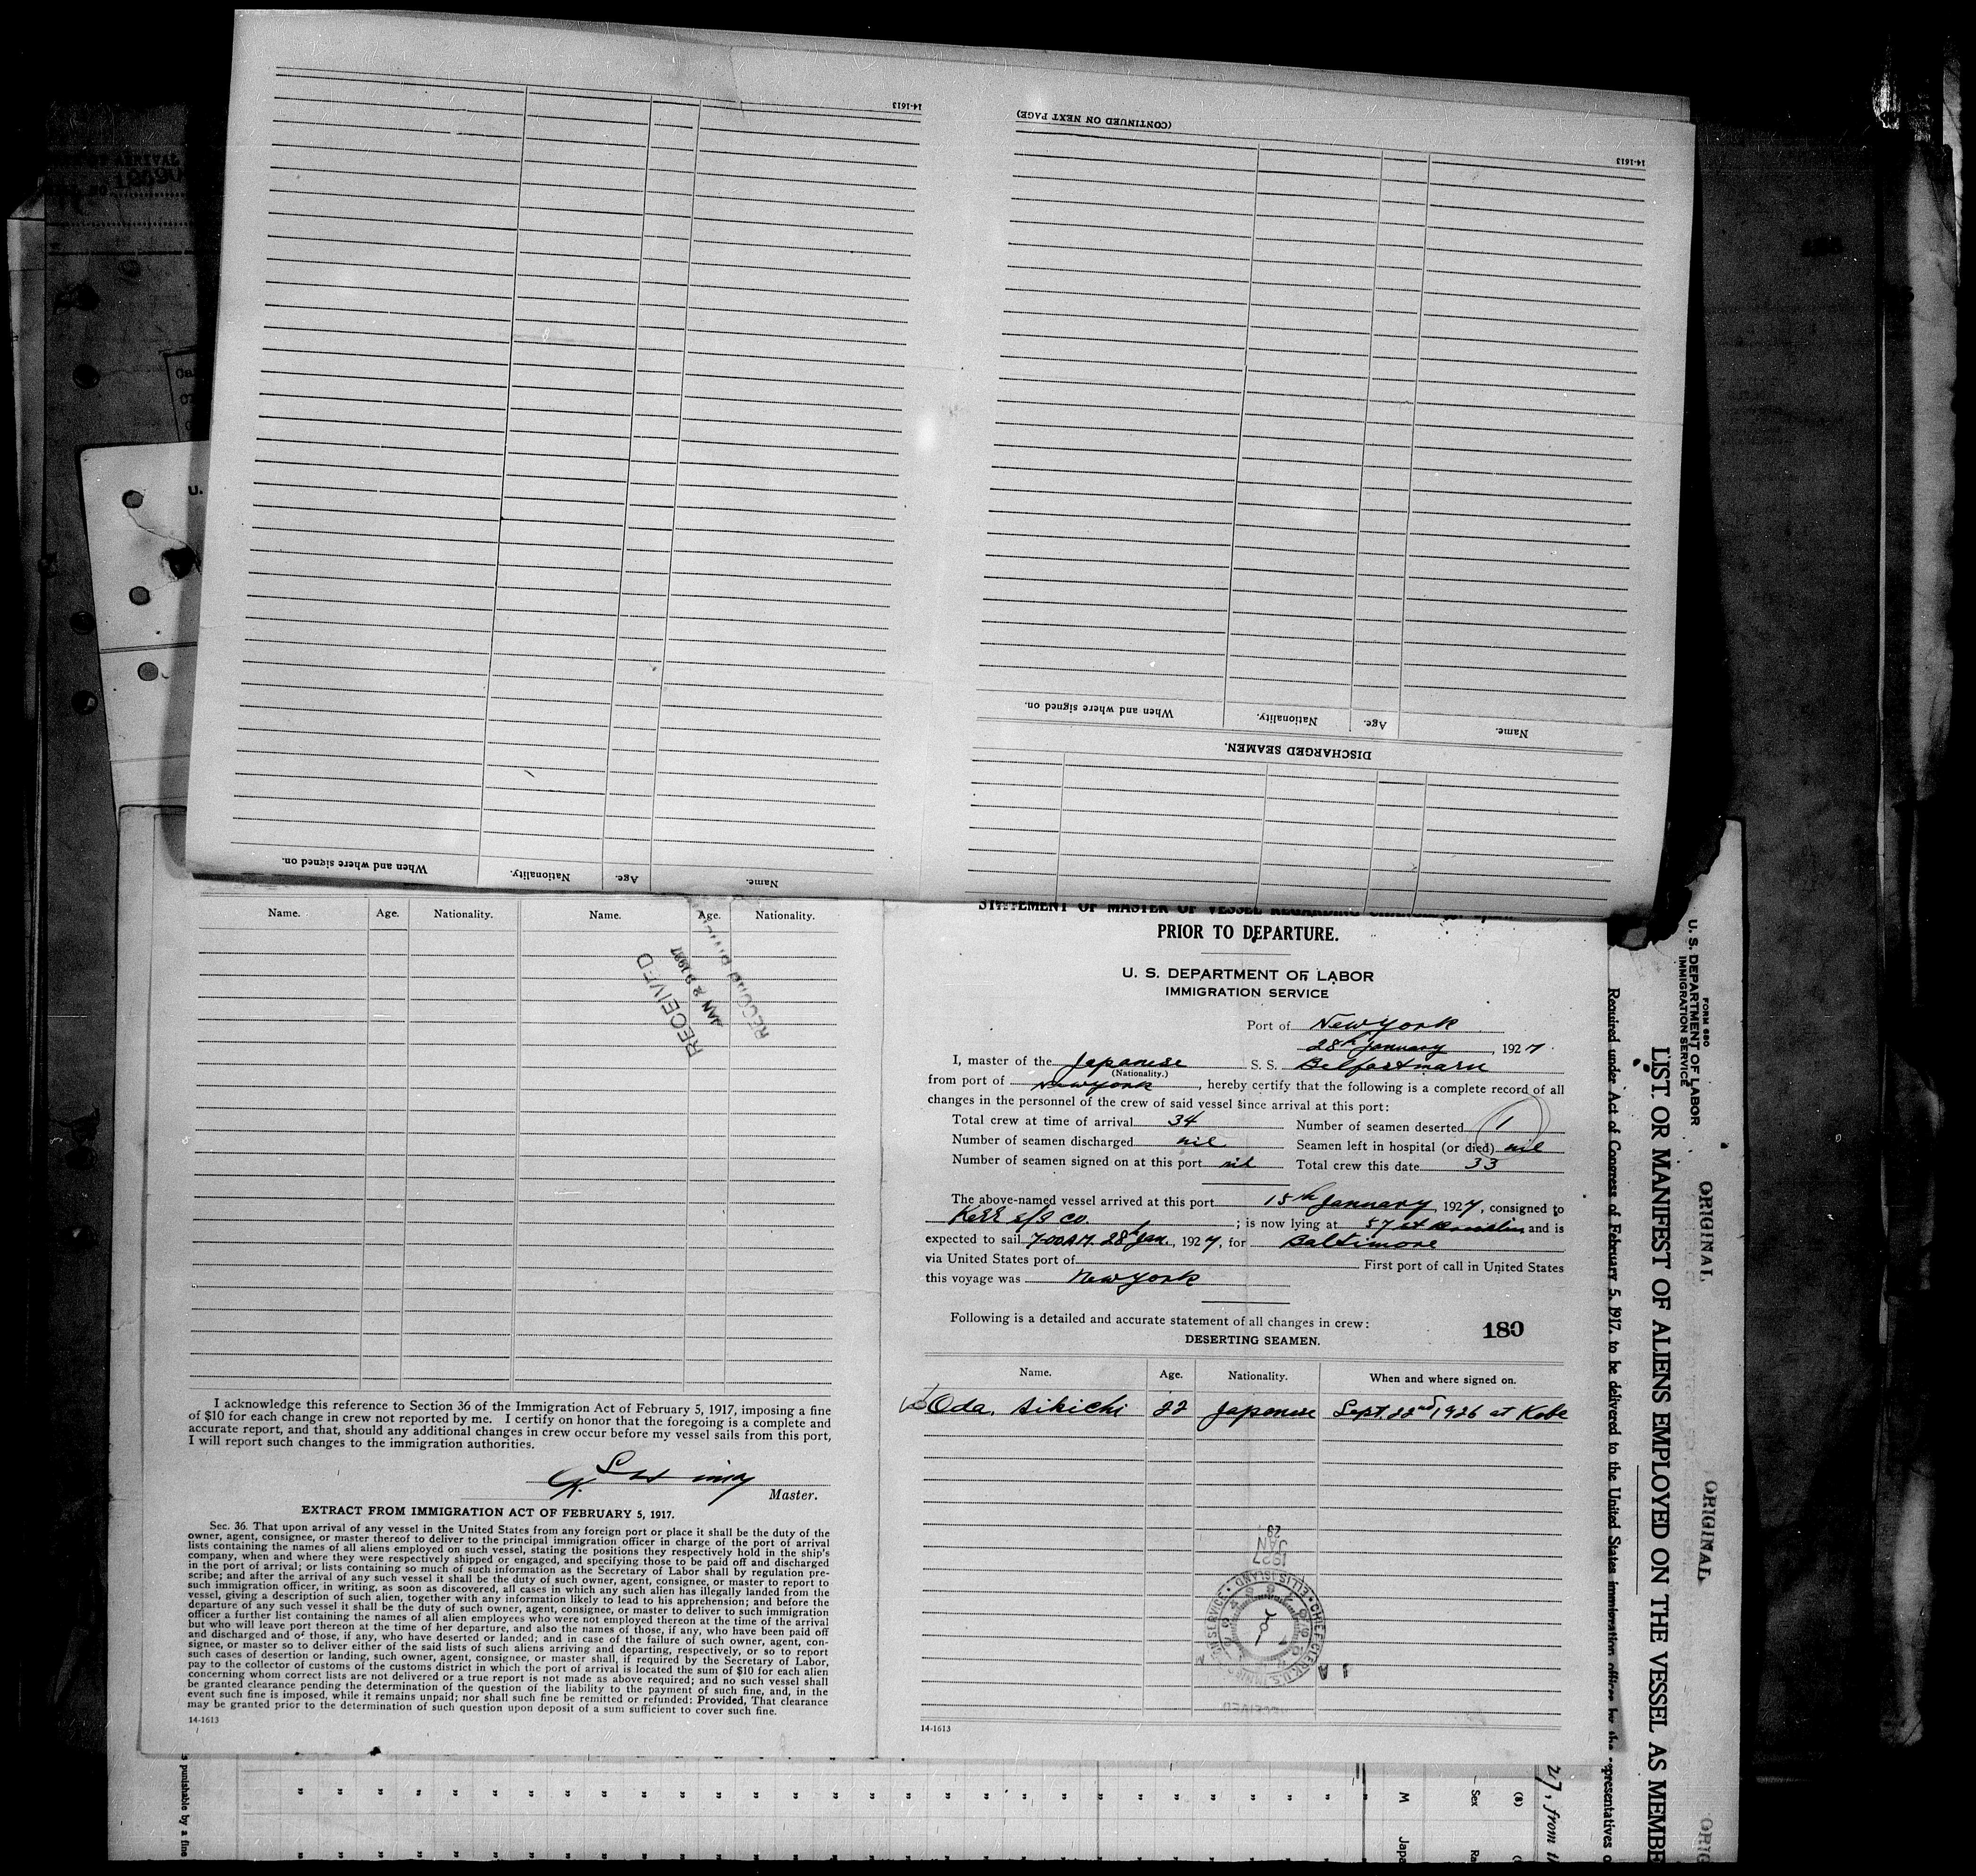 14-1613
(CONTINUED ON NEXT PAGE)
14-1613
When and where signed on.
Nationality.
Age.
Name.
DISCHARGED SEAMEN.
When and where signed on.
Nationality.
Age.
Name.
Name. Age. Nationality. Name. Age. Nationality.
RECEIVED
JAN 29 1927
I acknowledge this reference to Section 36 of the Immigration Act of February 5, 1917, imposing a fine
of $10 for each change in crew not reported by me. I certify on honor that the foregoing is a complete and
accurate report, and that, should any additional changes in crew occur before my vessel sails from this port,
I will report such changes to the immigration authorities.
Master.
EXTRACT FROM IMMIGRATION ACT OF FEBRUARY 5, 1917.
Sec. 36. That upon arrival of any vessel in the United States from any foreign port or place it shall be the duty of the
owner, agent, consignee, or master thereof to deliver to the principal immigration officer in charge of the port of arrival
lists containing the names of all aliens employed on such vessel, stating the positions they respectively hold in the ship's
company, when and where they were respectively shipped or engaged, and specifying those to be paid off and discharged
in the port of arrival; or lists containing so much of such information as the Secretary of Labor shall by regulation pre-
scribe; and after the arrival of any such vessel it shall be the duty of such owner, agent, consignee, or master to report to
such immigration officer, in writing, as soon as discovered, all cases in which any such alien has illegally landed from the
vessel, giving a description of such alien, together with any information likely to lead to his apprehension; and before the
departure of any such vessel it shall be the duty of such owner, agent, consignee, or master to deliver to such immigration
officer a further list containing the names of all alien employees who were not employed thereon at the time of the arrival
but who will leave port thereon at the time of her departure, and also the names of those, if any, who have been paid off
and discharged and of those, if any, who have deserted or landed; and in case of the failure of such owner, agent, con-
signee, or master so to deliver either of the said lists of such aliens arriving and departing, respectively, or so to report
such cases of desertion or landing, such owner, agent, consignee, or master shall, if required by the Secretary of Labor,
pay to the collector of customs of the customs district in which the port of arrival is located the sum of $10 for each alien
concerning whom correct lists are not delivered or a true report is not made as above required; and no such vessel shall
be granted clearance pending the determination of the question of the liability to the payment of such fine, and, in the
event such fine is imposed, while it remains unpaid; nor shall such fine be remitted or refunded: Provided, That clearance
may be granted prior to the determination of such question upon deposit of a sum sufficient to cover such fine.
14-1613
STATEMENT OF MASTER OF VESSEL REGARDING
PRIOR TO DEPARTURE.
U. S. DEPARTMENT OF LABOR
IMMIGRATION SERVICE
Port of New york
28th January, 1927.
I, master of the Japanese S. S. Belfastmaru
(Nationality.)
from port of New york, hereby certify that the following is a complete record of all
changes in the personnel of the crew of said vessel since arrival at this port:
Total crew at time of arrival 34 Number of seamen deserted 1
Number of seamen discharged nil Seamen left in hospital (or died) nil
Number of seamen signed on at this port nil Total crew this date 33
The above-named vessel arrived at this port 15th January, 1927, consigned to
Kerr s/s Co. ; is now lying at 57 st Brooklin and is
expected to sail 7-00AM 28th Jan., 1927, for Baltimore
via United States port of First port of call in United States
this voyage was New york
Following is a detailed and accurate statement of all changes in crew:
180
DESERTING SEAMEN.
Name. Age. Nationality. When and where signed on.
Oda, Sikichi 22 Japanese Sept. 22nd 1926 at Kobe
29
JAN
1927
CHIEF CLERK, U.S. IMMIGRATION SERVICE • ELLIS ISLAND •
RECEIVED
14-1613
FORM 680
U. S. DEPARTMENT OF LABOR
IMMIGRATION SERVICE
ORIGINAL
ORIGINAL
LIST OR MANIFEST OF ALIENS EMPLOYED ON THE VESSEL AS MEMBE
Required under Act of Congress of February 5, 1917, to be delivered to the United States immigration officer by the representatives o
27, from
(8)
Sex
M
Japa
s punishable by a fine